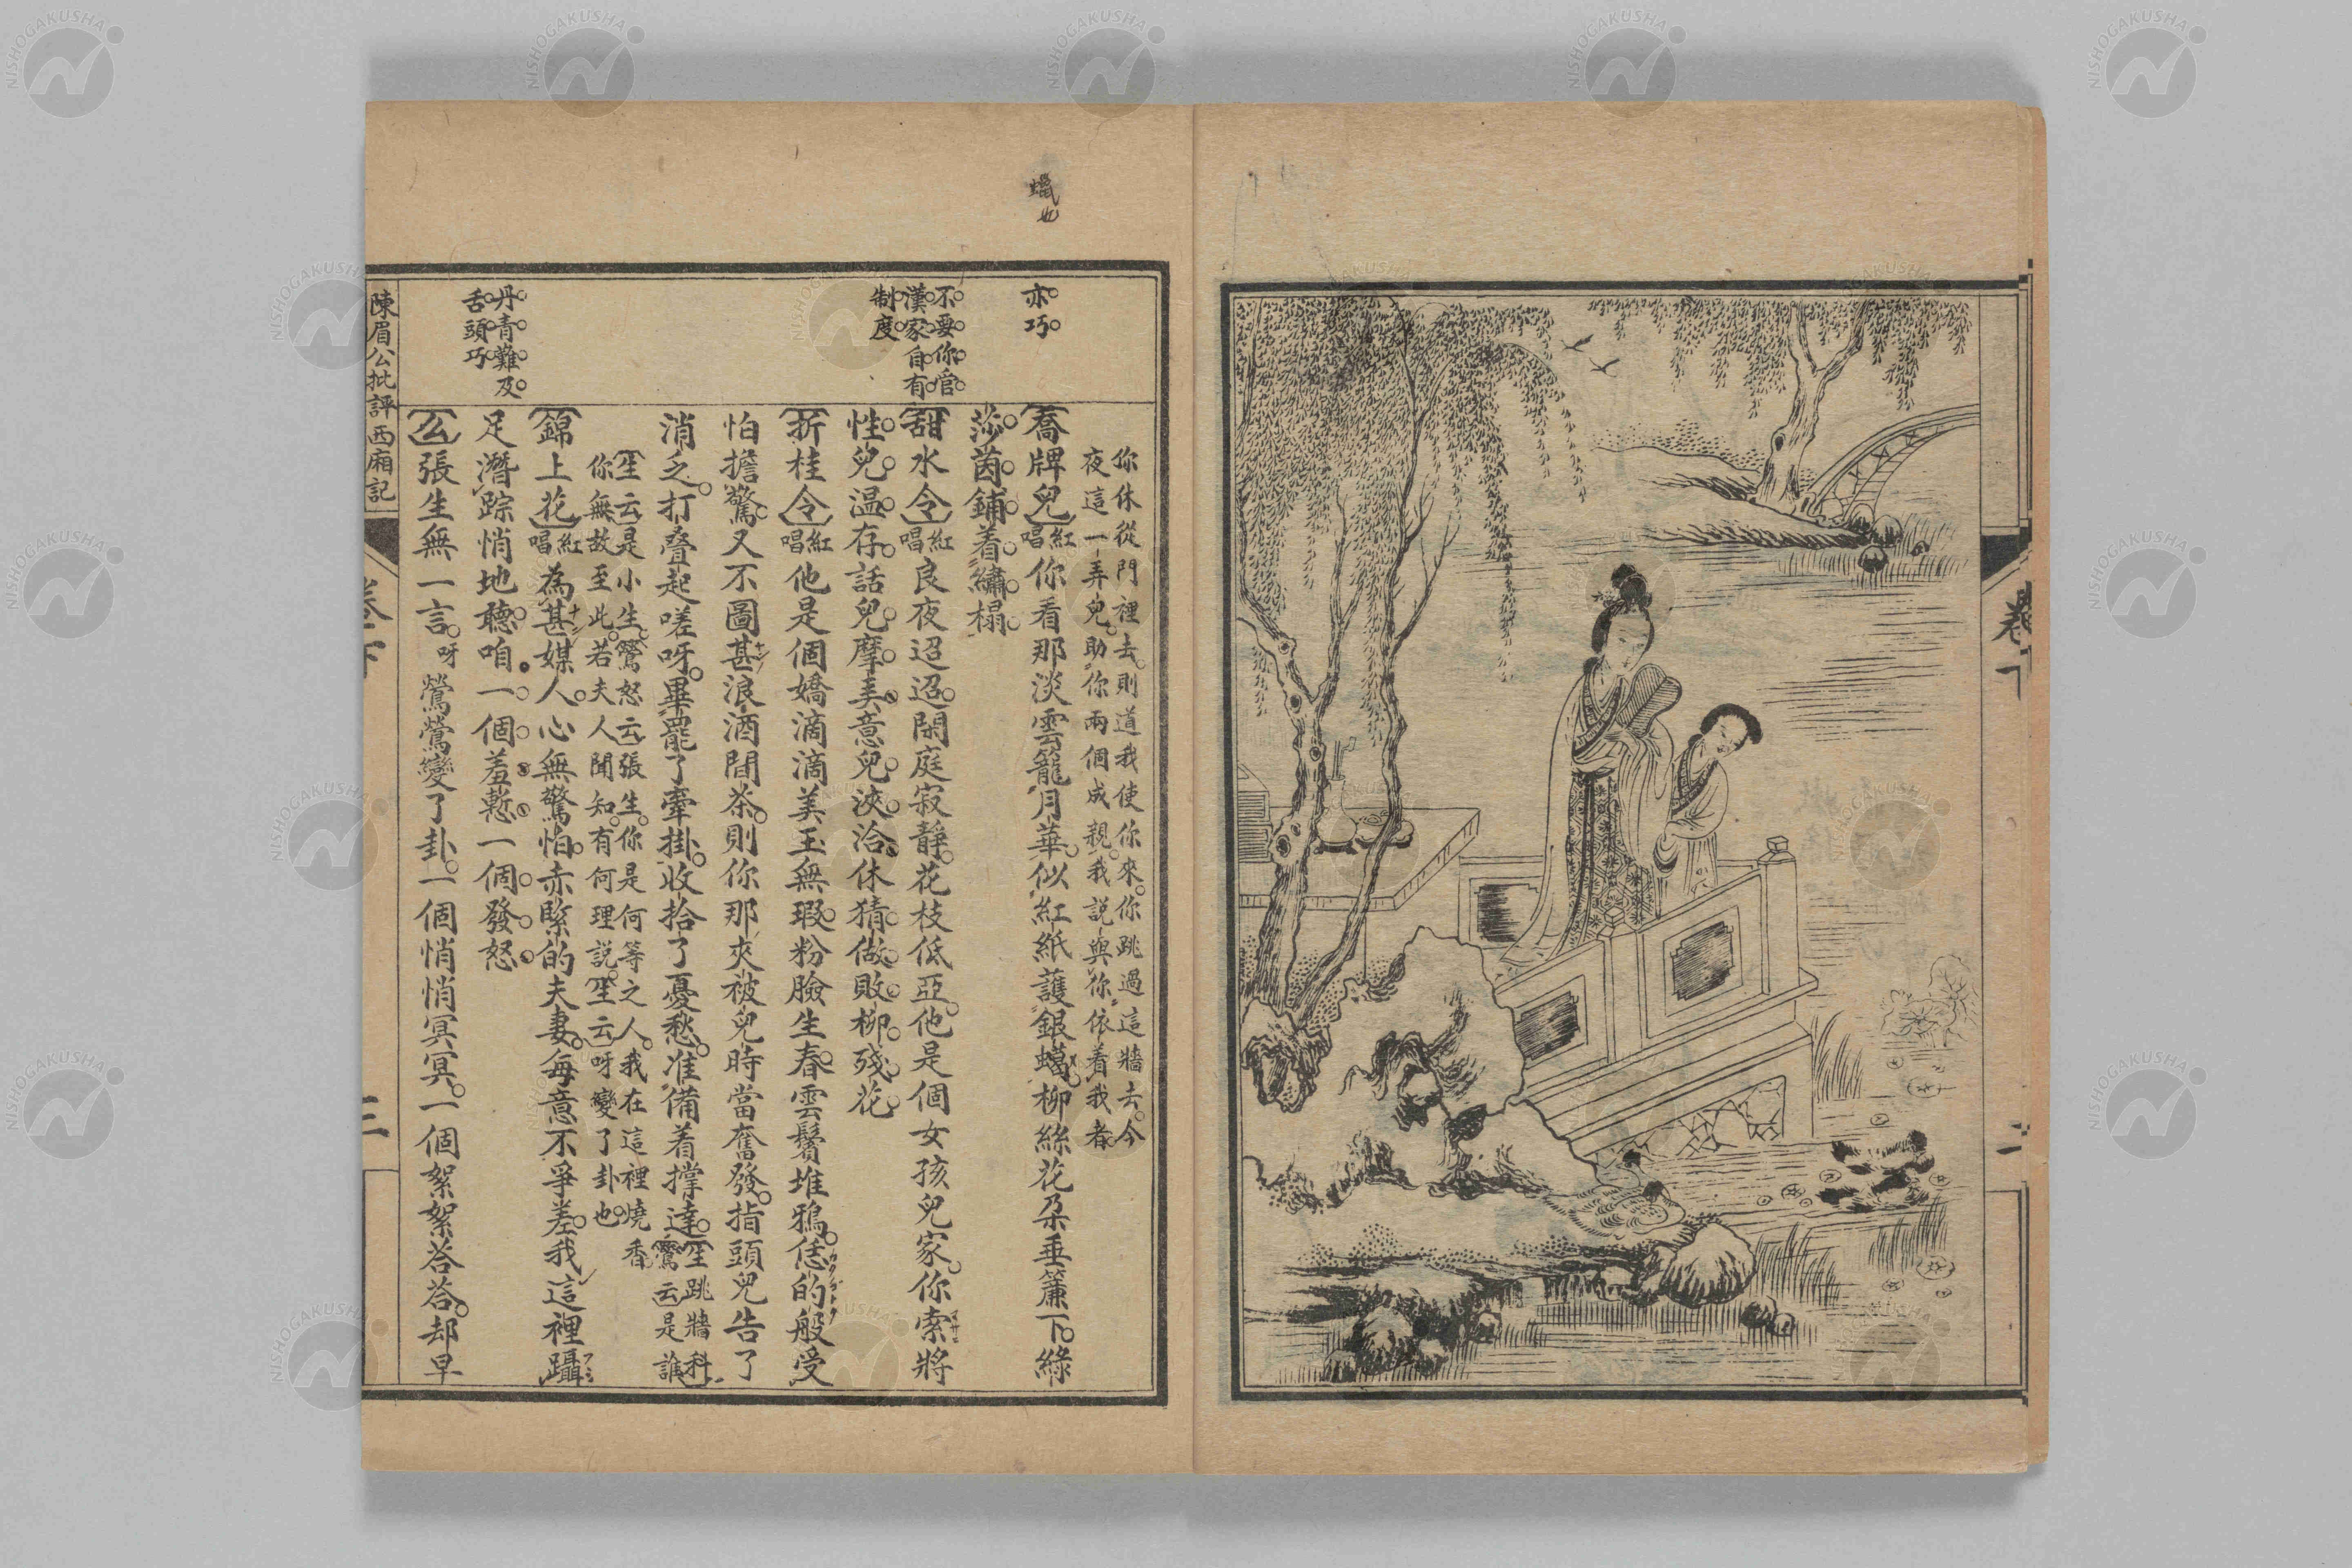 卷下
蠟也
亦巧
不要你管
漢家自有
制度
丹青難及
舌頭巧
你休從門裡去則道我使你來你跳過這牆去今
夜這一弄兒助你兩個成親我説與你依着我者
喬牌兒紅唱你看那淡雲籠月華似紅紙護銀蠟柳絲花朵垂簾下綠
莎茵鋪着繡榻
甜水令紅唱良夜迢迢閑庭寂靜花枝低亞他是個女孩兒家你索將
性兒温存話兒摩弄意兒浹洽休猜做敗柳殘花
折桂令紅唱他是個嬌滴滴美玉無瑕粉臉生春雲鬢堆鴉恁的般受
怕擔驚又不圖甚浪酒閒茶則你那夾被兒時當奮發指頭兒告了
消乏打疊起嗟呀畢罷了牽掛收拾了憂愁准備着撐達生跳牆科
鶯云是誰
生云是小生鶯怒云張生你是何等之人我在這裡燒香
你無故至此若夫人聞知有何理説生云呀變了卦也
錦上花紅唱為甚媒人心無驚怕赤緊的夫妻每意不爭差我這裡躡
足潛踪悄地聽咱一個羞慙一個發怒
么張生無一言呀鶯鶯變了卦一個悄悄冥冥一個絮絮荅荅却早
陳眉公批評西廂記
卷下
三
NISHOGAKUSHA